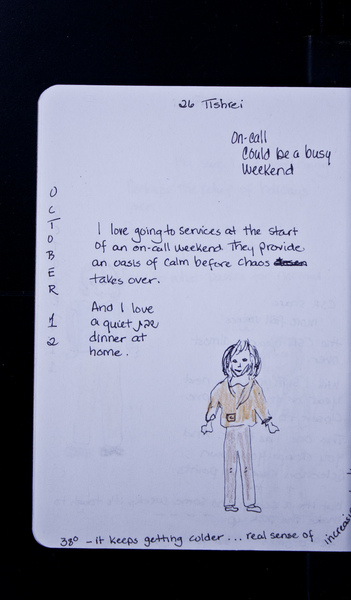 26 Tishrei
On-call
Could be a busy
weekend
OCTOBER 12
I love going to services at the start
of an on-call weekend They provide
an oasis of calm before chaos
takes over.
And I love
a quiet
dinner at
home.
38° - it keeps getting colder... real sense of